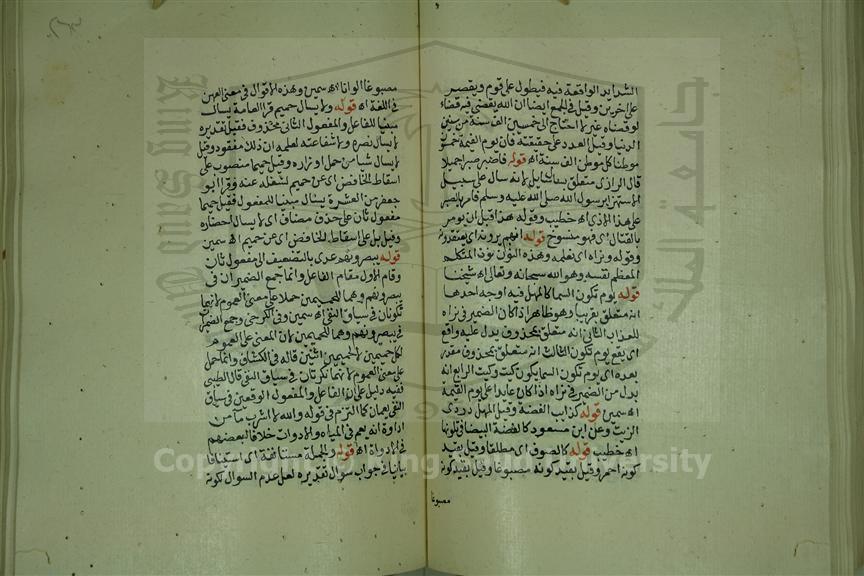 الشدايد الواقعة فيه فيطول على قوم ويقصر
على اخرين وقيل في الجمع ايضا ان الله يقضي فيه قضاء
لو قضاه غيره لاحتاج الى خمسين الف سنة من سنين
الدنيا وقيل العدد على حقيقته فان يوم القيمة خمسون
موطنا كل موطن الف سنة اه قوله فاصبر صبرا جميلا
قال الرازي متعلق بسال سايل لانه سال على سبيل
الاستهزا برسول الله صلى الله عليه وسلم فامر بالصبر
على هذا الاذى اه خطيب وقوله هذا قبل ان يومر
بالقتال اي فهو منسوخ قوله انهم يرونه اي يعتقدونه
وقوله ونراه اي نعلمه وهذه النون نون المتكلم
المعظم نفسه وهو الله سبحانه وتعالى اه شيخنا
قوله يوم تكون السما كالمهل فيه اوجه احدها
انه متعلق بقريبا وهو ظاهر اذا كان الضمير في نراه
للعذاب الثاني انه متعلق بمحذوف يدل عليه واقع
اي يقع يوم تكون الثالث انه متعلق بمحذوف مقدر
بعده اي يوم تكون السما يكون كيت وكيت الرابع انه
بدل من الضمير في نراه اذا كان عايدا على يوم القيمة
اه سمين قوله كذايب الفضة وقيل المهل دردي
الزيت وعن ابن مسعود كالفضة البيضا في تلونها
اه خطيب قوله كالصوف اي مطلقا وقيل بقيد
كونه احمر وقيل بقيد كونه مصبوغا وقيل بقيد كونه
مصبوغا
مصبوغا الوانا اه سمين وهذه الاقوال في معنى العهن
في اللغة اه قوله ولا يسال حميم قرا العامة يسال
مبنيا للفاعل والمفعول الثاني محذوف فقيل تقديره
لا يسال نصره ولا شفاعته لعلمه ان ذلك مفقود وقيل
لا يسال شيا من حمل اوزاره وقيل حميما منصوب على
اسقاط الخافض اي عن حميم لشغله عنه وقرا ابو
جعفر من العشرة يسال مبنيا للمفعول فقيل حميما
مفعول ثان على حذف مضاف اي لا يسال احضاره
وقيل بل على اسقاط الخافض اي عن حميم اه سمين
قوله يبصرونهم عدى بالتضعيف الى مفعول ثان
وقام الاول مقام الفاعل وانما جمع الضميران في
يبصرونهم وهما للحميمين حملا على معنى العموم لانهما
نكرتان في سياق النفي اه سمين وفي الكرخي وجمع الضمير
في يبصرونهم وهما للحميمين لان المعنى على العموم
لكل حميمين لا لحميمين اثنين قاله في الكشاف وانما حمل
على معنى العموم لانهما نكرتان في سياق النفي قال الطيبي
ففيه دليل على ان الفاعل والمفعول الواقعين في سياق
النفي يعمان كما التزم في قوله والله لا اشرب ماء من
اداوة انه يعم في المياه والادوات خلافا لبعضهم
في الادواة اه قوله والجملة مستانفة اي استينافا
بيانيا في جواب سوال تقديره لعل عدم السوال لكونه
جامعة الملك
King Saud University
Copyright © King Saud University